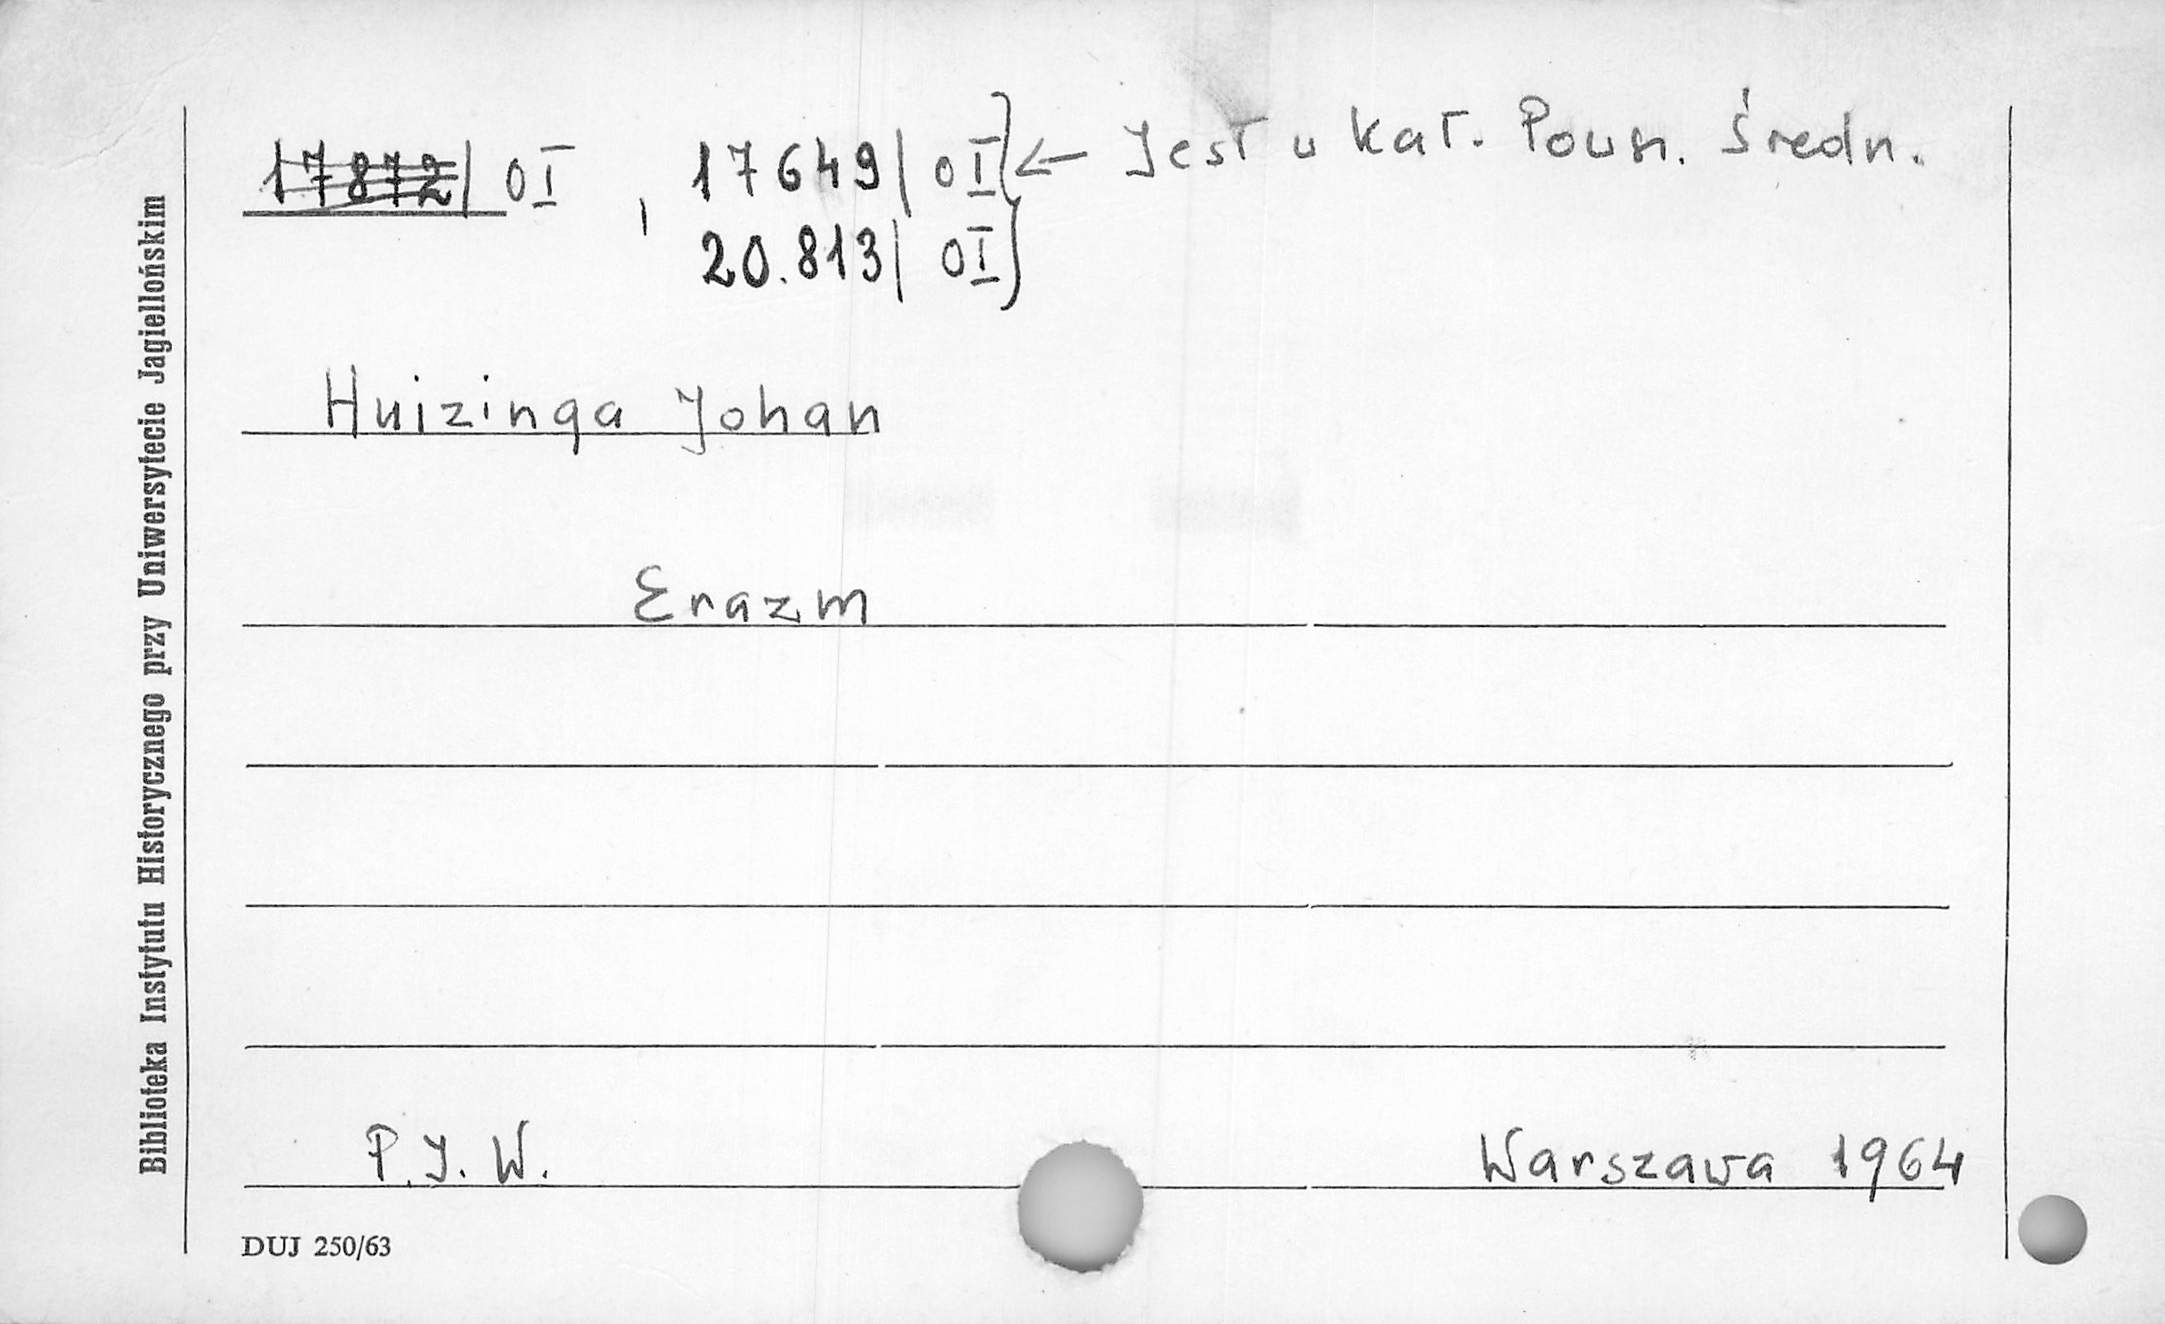 17872/ OI, 17649/ OI ← Jest u kat. Pows. Średn.
20.813/ OI
Huizinga Johan
Erazm
P.I.W. Warszawa 1964
DUJ 250/63
Biblioteka Instytutu Historycznego przy Uniwersytecie Jagiellońskim